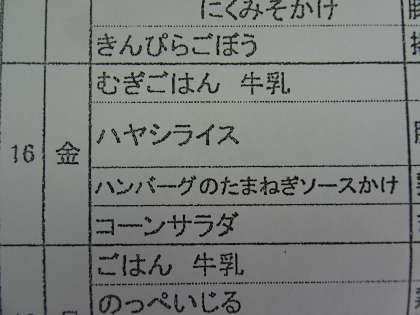 にくみそかけ
きんぴらごぼう
むぎごはん 牛乳
ハヤシライス
16 金
ハンバーグのたまねぎソースかけ
コーンサラダ
ごはん 牛乳
のっぺいじる